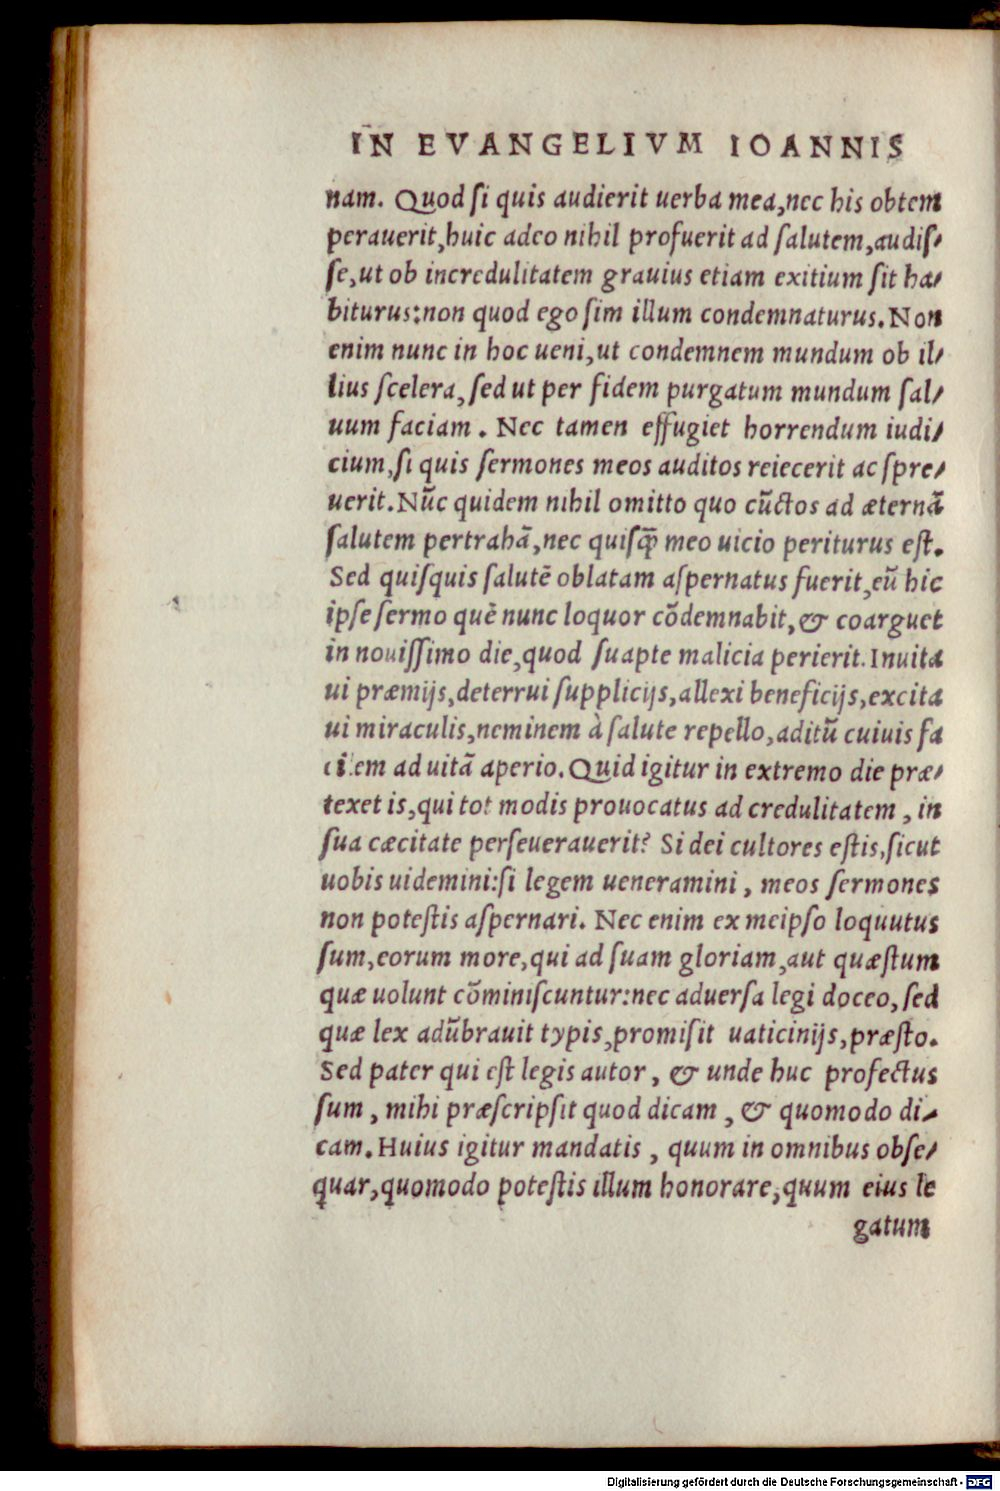 IN EVANGELIVM IOANNIS
nam. Quod ſi quis audierit uerba mea, nec his obtem
perauerit, huic adeo nihil profuerit ad ſalutem, audiſ-
ſe, ut ob incredulitatem grauius etiam exitium ſit ha-
biturus: non quod ego ſim illum condemnaturus. Non
enim nunc in hoc ueni, ut condemnem mundum ob il-
lius ſcelera, ſed ut per fidem purgatum mundum ſal-
uum faciam. Nec tamen effugiet horrendum iudi-
cium, ſi quis ſermones meos auditos reiecerit ac ſpre-
uerit. Nūc quidem nihil omitto quo cūctos ad æternā
ſalutem pertrahā, nec quiſq̄ meo uicio periturus eſt.
Sed quiſquis ſalutē oblatam aſpernatus fuerit, eū hic
ipſe ſermo quē nunc loquor cōdemnabit, & coarguet
in nouiſſimo die, quod ſuapte malicia perierit. Inuita
ui præmijs, deterrui ſupplicijs, allexi beneficijs, excita
ui miraculis, neminem à ſalute repello, aditū cuiuis fa
cilem ad uitā aperio. Quid igitur in extremo die præ-
texet is, qui tot modis prouocatus ad credulitatem, in
ſua cæcitate perſeuerauerit? Si dei cultores eſtis, ſicut
uobis uidemini: ſi legem ueneramini, meos ſermones
non poteſtis aſpernari. Nec enim ex meipſo loquutus
ſum, eorum more, qui ad ſuam gloriam, aut quæſtum
quæ uolunt cōminiſcuntur: nec aduerſa legi doceo, ſed
quæ lex adūbrauit typis, promiſit uaticinijs, præſto.
Sed pater qui eſt legis autor, & unde huc profectus
ſum, mihi præſcripſit quod dicam, & quomodo di-
cam. Huius igitur mandatis, quum in omnibus obſe-
quar, quomodo poteſtis illum honorare, quum eius le
gatum
Digitalisierung gefördert durch die Deutsche Forschungsgemeinschaft - DFG